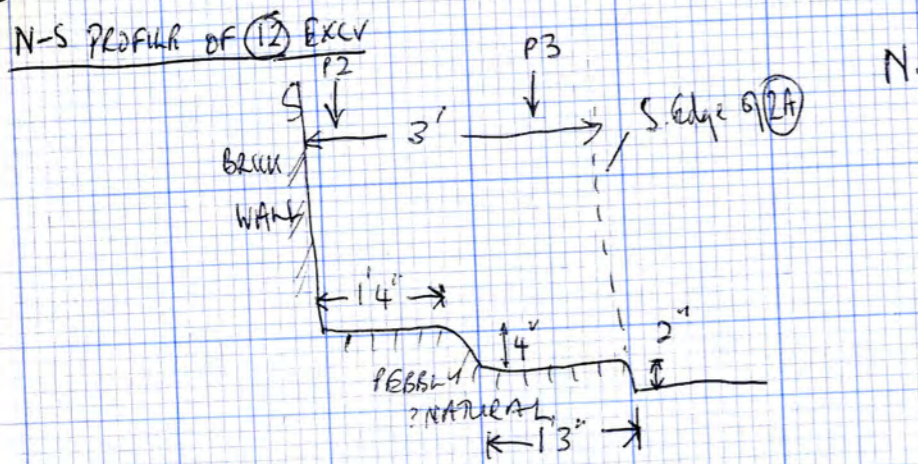 N-S PROFILE OF 12 EXCV
P2
P3
N.
S
3'
S. Edge of 2A
BRICK
WALL
1'4"
4"
2"
PEBBLY
? NATURAL
1'3"